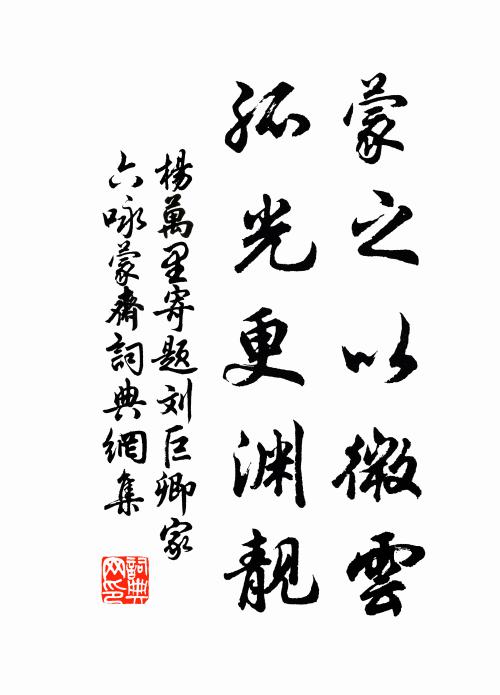 蒙之以微雲
孤光更渊靚
楊萬里寄題刘巨卿家
六咏蒙齋詞典網集
詞典网印